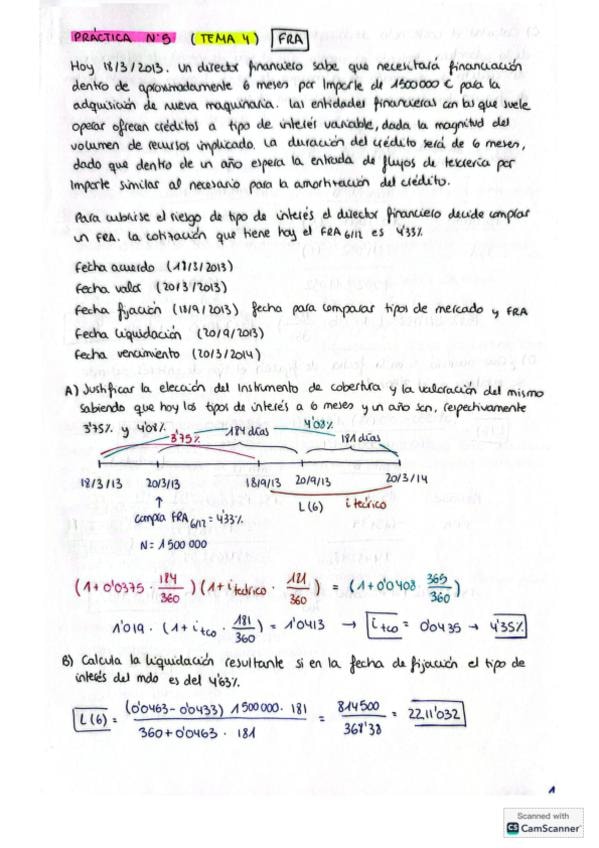 PRÁCTICA Nº5 (TEMA 4) FRA
Hoy 18/3/2013. Un director financiero sabe que necesitará financiación
dentro de aproximadamente 6 meses por importe de 1500000 € para la
adquisición de nueva maquinaria. Las entidades financieras con las que suele
operar ofrecen créditos a tipo de interés variable, dada la magnitud del
volumen de recursos implicado. La duración del crédito será de 6 meses,
dado que dentro de un año espera la entrada de flujos de tesorería por
importe similar al necesario para la amortización del crédito.
Para cubrirse el riesgo de tipo de interés el director financiero decide comprar
un FRA. La cotización que tiene hoy el FRA 6/12 es 4'33%
Fecha acuerdo (18/3/2013)
Fecha valor (20/3/2013)
Fecha fijación (18/9/2013) fecha para comparar tipos de mercado y FRA
Fecha liquidación (20/9/2013)
Fecha vencimiento (20/3/2014)
A) Justificar la elección del instrumento de cobertura y la valoración del mismo
sabiendo que hoy los tipos de interés a 6 meses y un año son, respectivamente
3'75% y 4'08%.
3'75% 184 días 4'08% 181 días
18/3/13 20/3/13 18/9/13 20/9/13 20/3/14
↑ L(6) i teórico
compra FRA 6/12 = 4'33%
N = 1500 000
(1+0'0375 · 184/360)(1+i teórico · 181/360) = (1+0'0408 · 365/360)
1'019 · (1+ i tco · 181/360) = 1'0413 → i tco = 0'0435 → 4'35%
B) Calcula la liquidación resultante si en la fecha de fijación el tipo de
interés del mdo es del 4'63%.
L(6) = (0'0463-0'0433) 1500000 · 181 / 360+0'0463 · 181 = 814500 / 368'38 = 2211'032
1
Scanned with
CS CamScanner